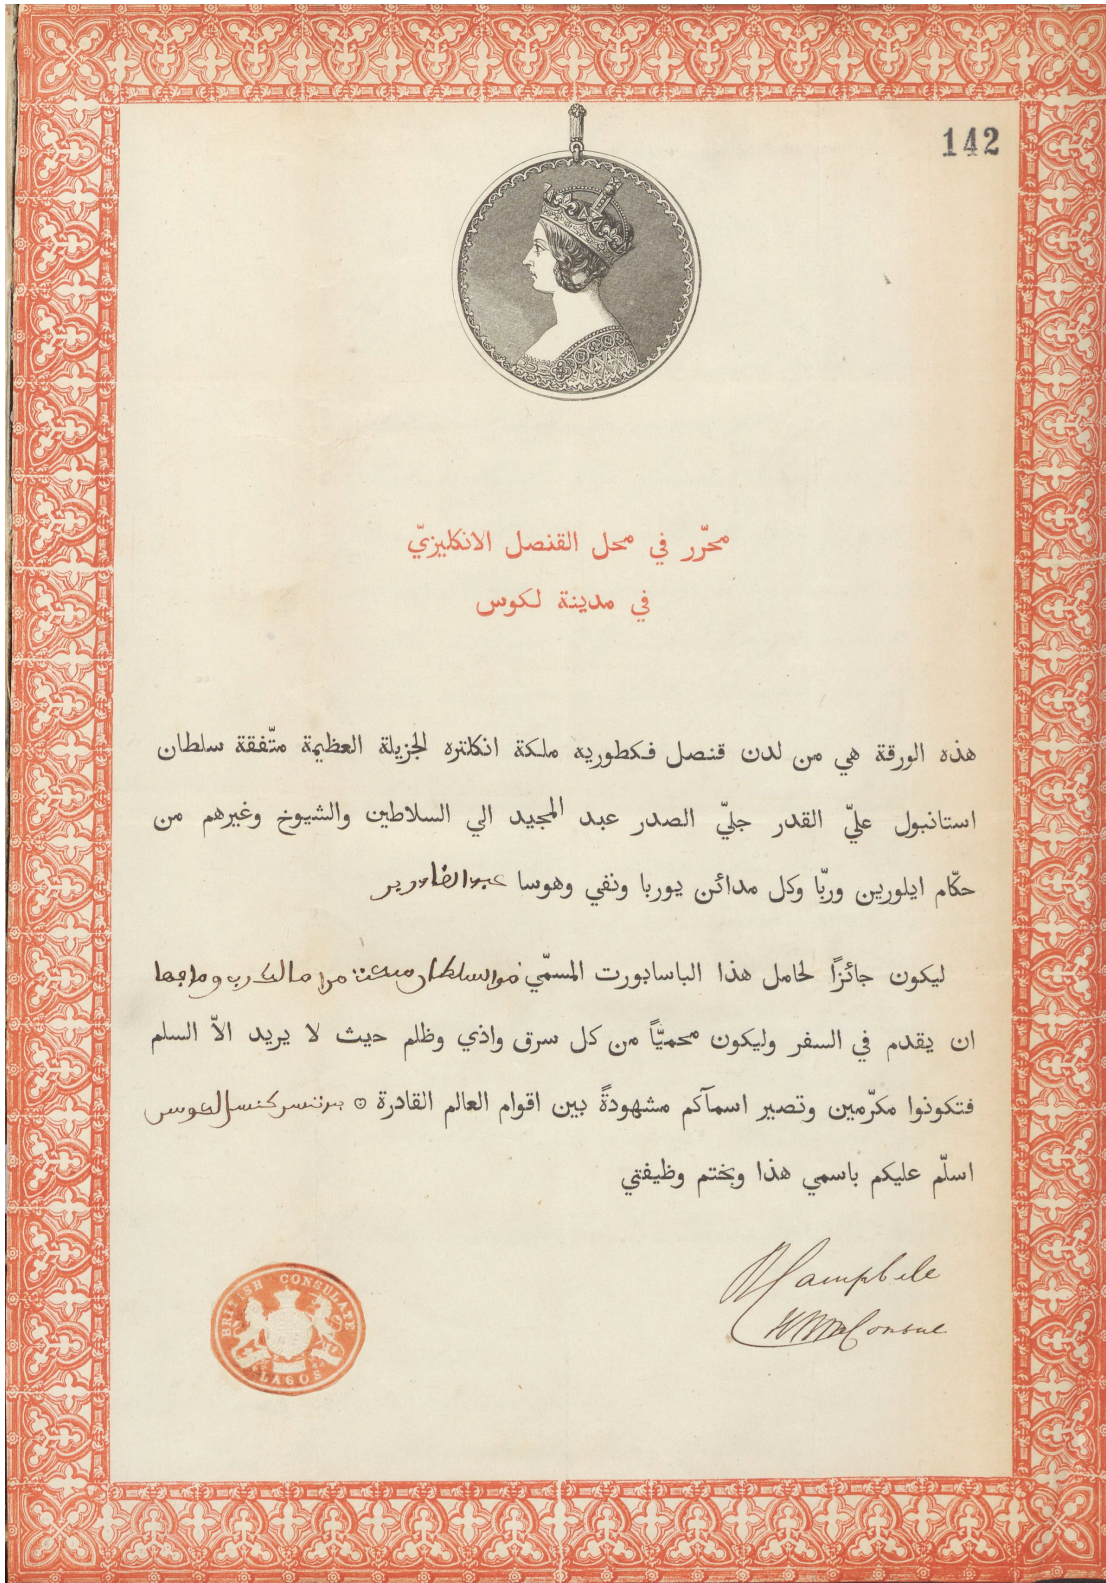 142
محرّر في محل القنصل الانكليزيّ
في مدينة لكوس
هذه الورقة هي من لدن قنصل فكطوريه ملكة انكلتره الجزيلة العظيمة متّفقة سلطان
استانبول عليّ القدر جليّ الصدر عبد المجيد الي السلاطين والشيوخ وغيرهم من
حكّام ايلورين وربّا وكل مدائن يوربا ونفي وهوسا
ليكون جائزًا لحامل هذا الباسابورت المسمّي
ان يقدم في السفر وليكون محميًّا من كل سرق واذي وظلم حيث لا يريد الاّ السلم
فتكونوا مكرّمين وتصير اسمآكم مشهودةً بين اقوام العالم القادرة ⊙
اسلّم عليكم باسمي هذا وبختم وظيفتي
Campbell
HBM Consul
BRITISH CONSULATE
LAGOS